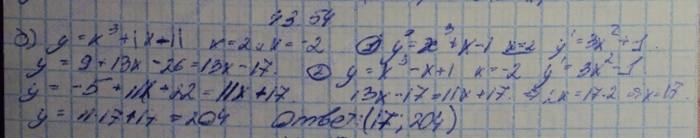 43.54
б) y = x³ + |x - 1| x = 2 и x = -2 ① y = x³ + x - 1 x = 2 y' = 3x² + 1
y = 9 + 13x - 26 = 13x - 17. ② y = x³ - x + 1 x = -2 y' = 3x² - 1
y = -5 + 11x + 22 = 11x + 17 13x - 17 = 11x + 17 ⇒ 2x = 17·2 ⇒ x = 17.
y = 11·17 + 17 = 204 Ответ: (17; 204)